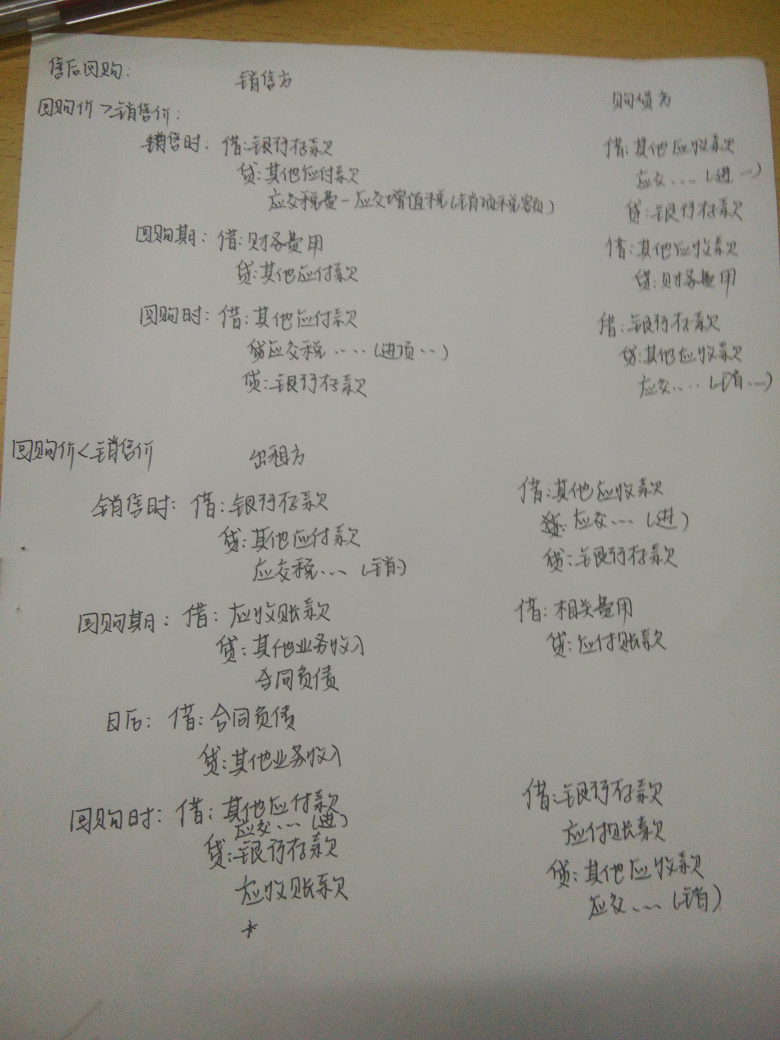 售后回购: 销售方 购货方
回购价>销售价:
销售时: 借:银行存款 借:其他应收款
贷:其他应付款 应交....(进…)
应交税费-应交增值税(销项税额) 贷:银行存款
回购期: 借:财务费用 借:其他应收款
贷:其他应付款 贷:财务费用
回购时: 借:其他应付款 借:银行存款
应交税....(进项…) 贷:其他应收款
贷:银行存款 应交....(销…)
回购价<销售价 出租方
销售时: 借:银行存款 借:其他应收款
贷:其他应付款 应交...(进)
应交税...(销) 贷:银行存款
回购期: 借:应收账款 借:相关费用
贷:其他业务收入 贷:应付账款
合同负债
日后: 借:合同负债
贷:其他业务收入
回购时: 借:其他应付款 借:银行存款
应交...(进) 应付账款
贷:银行存款 贷:其他应收款
应收账款 应交...(销)